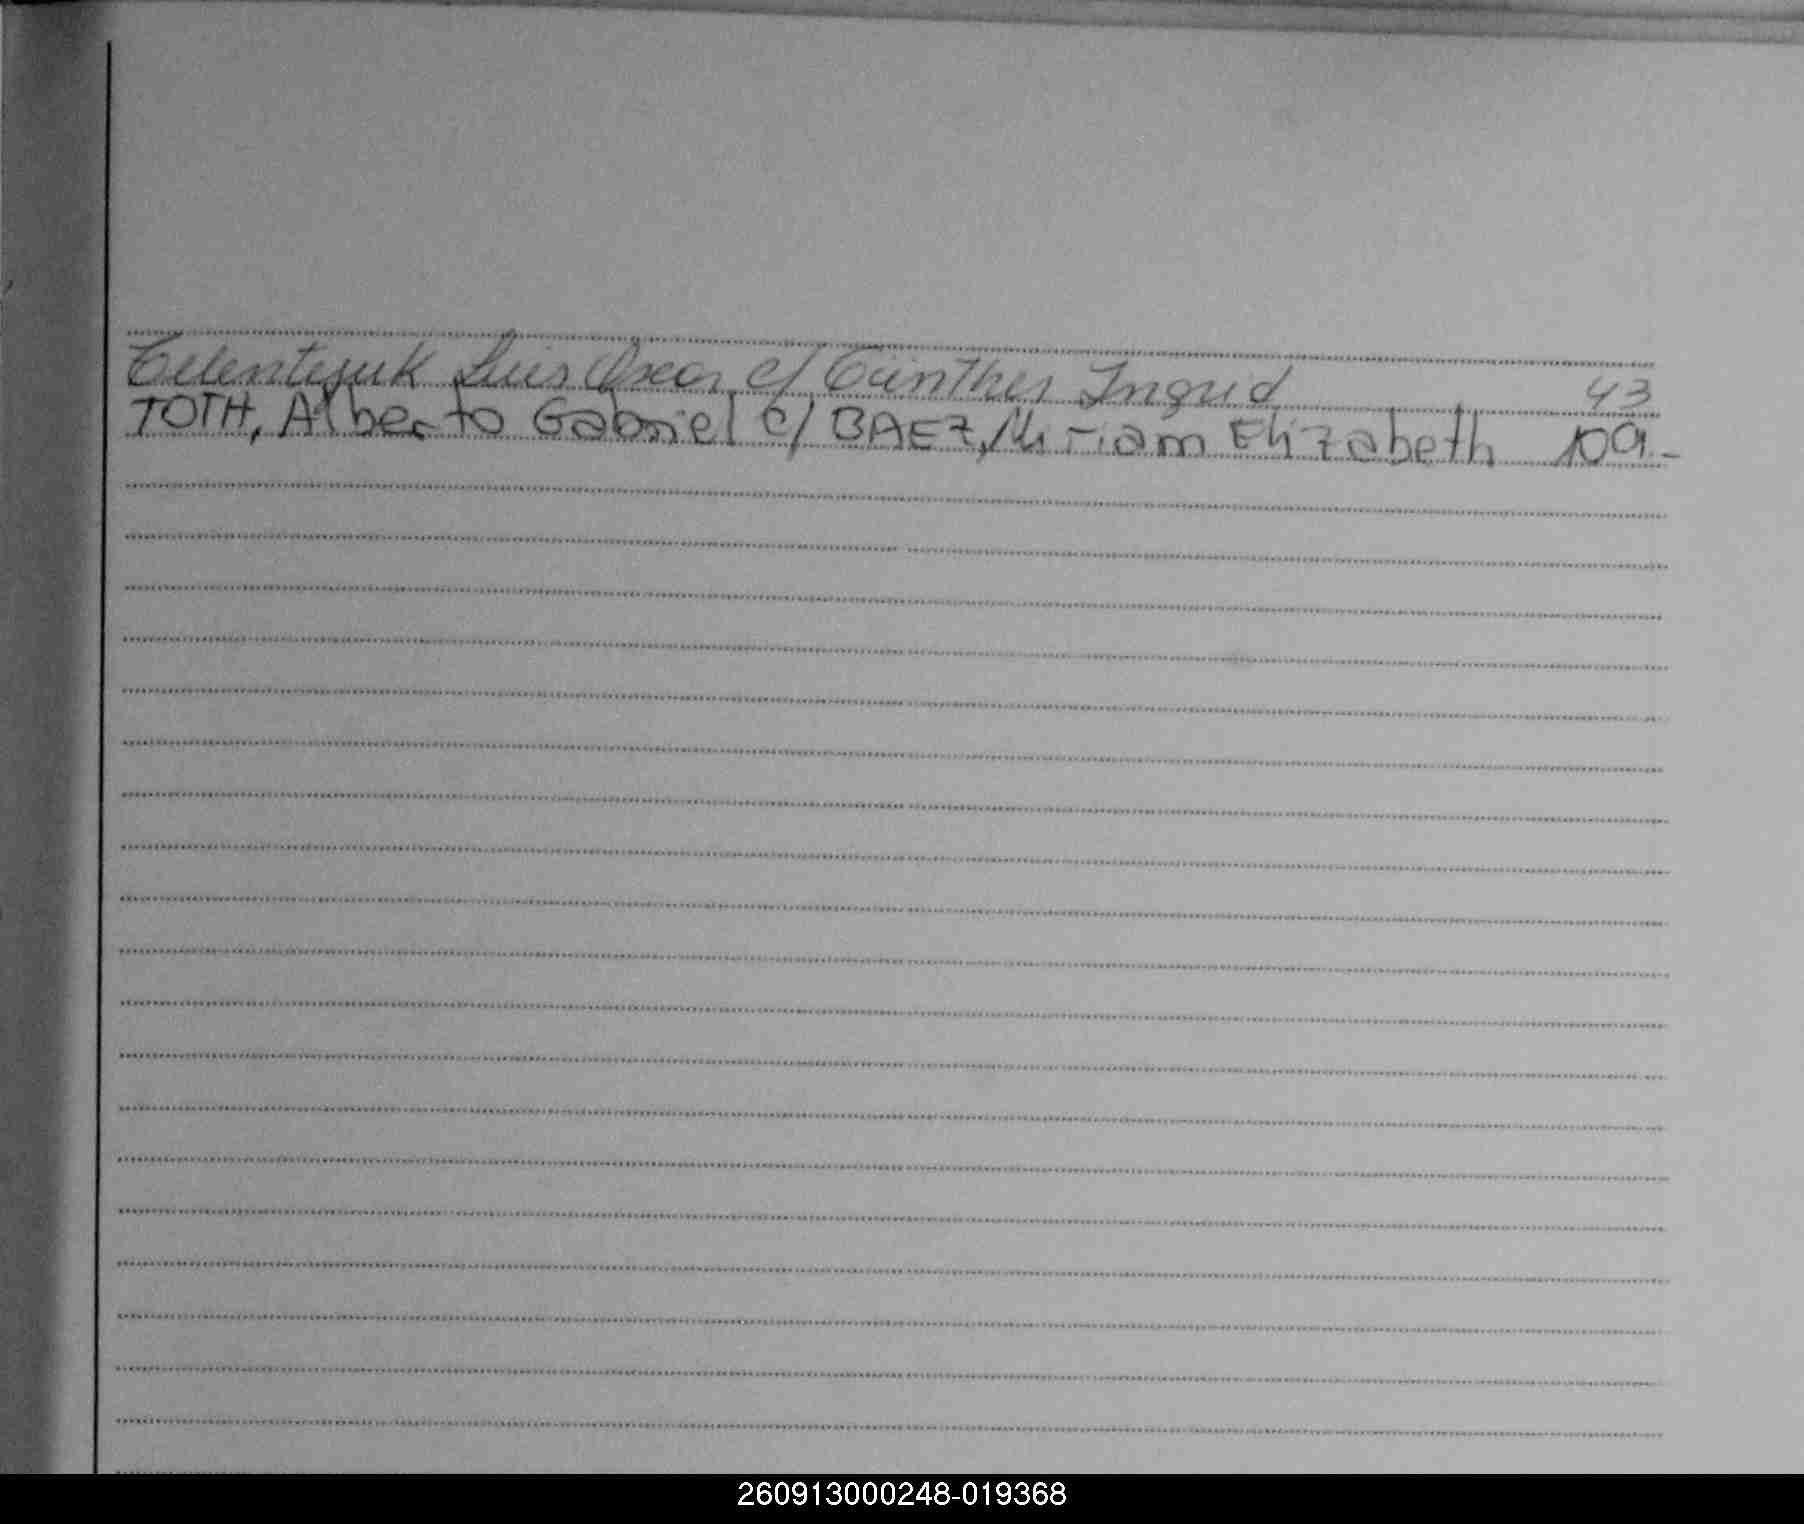 Telentejuk Luis Oscar c/ Günther Ingrid 43
TOTH, Alberto Gabriel c/ BAEZ, Miriam Elizabeth 109.-
260913000248-019368